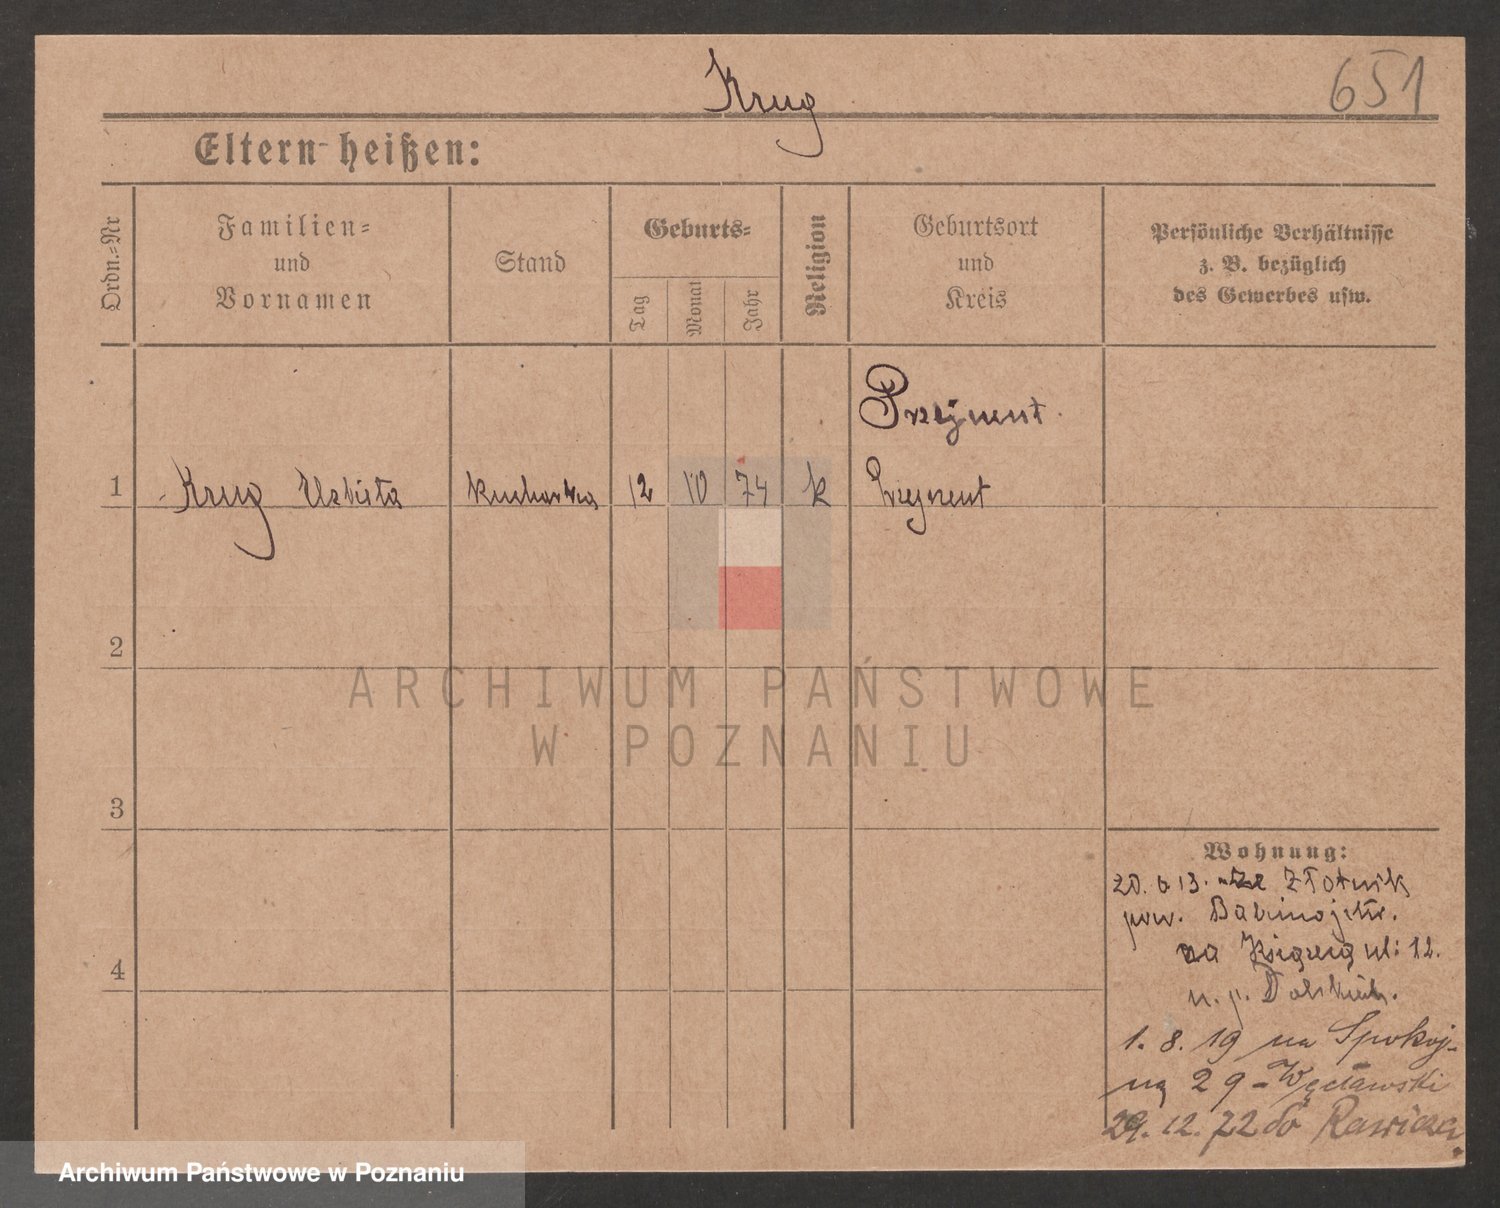 Krug
651
Eltern heißen:
Ordn.=Nr
Familien=
und
Vornamen
Stand
Geburts=
Tag
Monat
Jahr
Religion
Geburtsort
und
Kreis
Persönliche Verhältnisse
z. B. bezüglich
des Gewerbes usw.
Przyment
1 Krug kucharka 12 10 74 k Przyment
2
ARCHIWUM PAŃSTWOWE
W POZNANIU
3
Wohnung:
20. 6 13. Ze Złotnik
pow. Babimojski.
na Książęcą ul: 12.
u. p. Dolskich.
4
1. 8. 19 na Spokoj-
ną 29 - Węcławski
29. 12. 22 do Rawicza.
Archiwum Państwowe w Poznaniu